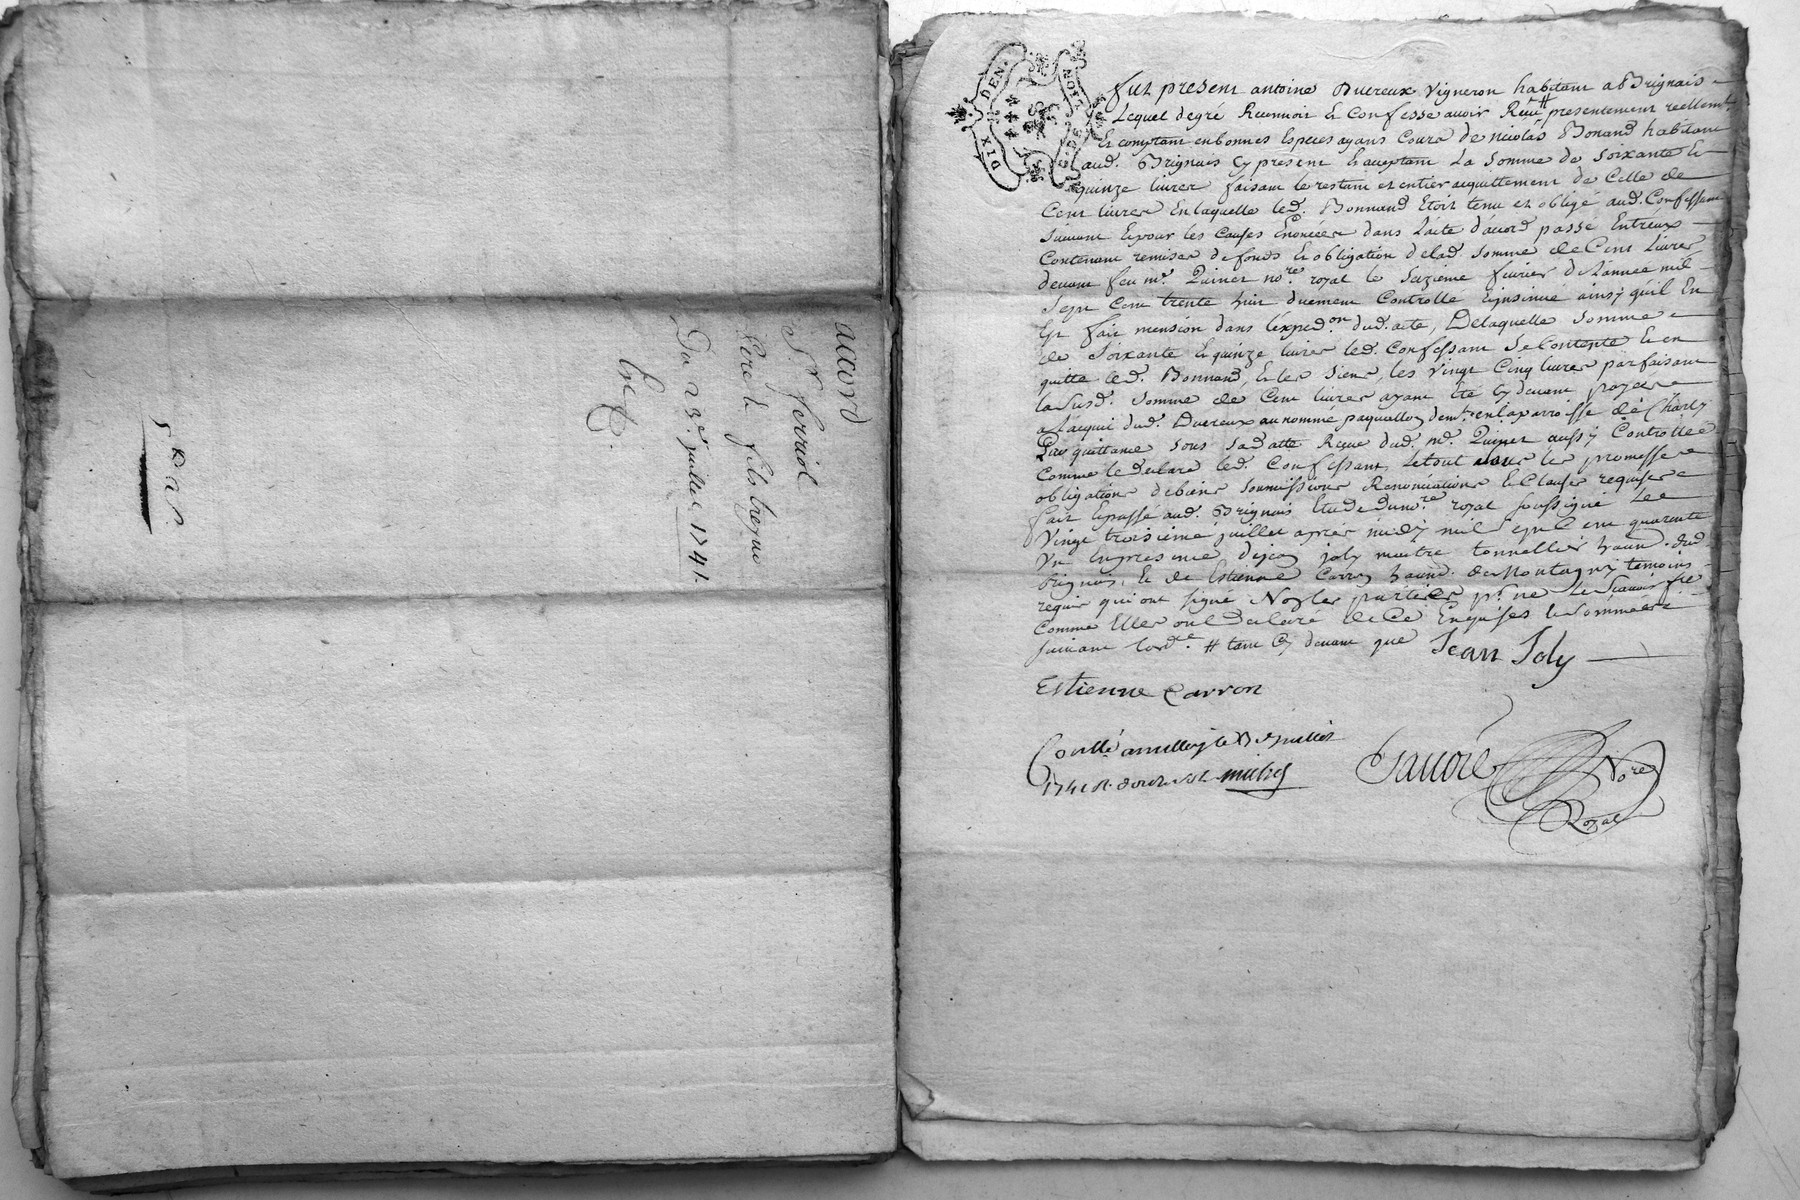 accord
Sr. ferriol
Pere & fils
Du 23e. juillet 1741.
DIX DEN.
GEN. DE LYON
fut present antoine Duereux vigneron habitant a Brignais
Lequel degré Reconnoit & Confesse avoir Receu # presentement reellemt.
Et comptant en bonnes Especes ayans Cours de nicolas Bonand habitant
aud. Brignais Cy present & acceptant La Somme de Soixante &
quinze livres faisant le restant et entier acquittement de Celle de
Cent livres En laquelle led. Bonnand Etoit tenu et obligé aud. Confessant
Suivant & pour les Causes Enoncées dans l'acte d'acord passé Entr'eux
Contenant remises de fonds & obligation de lad. Somme de Cent Livres
devant feu me. Quinet nore. royal le Seizieme fevrier de l'année mil
Sept Cent trente huit duement Controllé & insinué ainsy qu'il En
Est fait mension dans l'expedon. dud. acte, De laquelle Somme
de Soixante & quinze livres led. Confessant Se Contente & en
quitte led. Bonnand, & les Siens, les vingt Cinq livres parfaisant
la Susd. Somme de Cent livres ayant été Cy devant payées
a l'acquit dud. Duereux au nommé paquallon demt. en la parroisse de Charly
Par quittance Sous Sa datte Reçue dud. me. Quinet aussy Controllée
Comme le Declare led. Confessant, Le tout Sous les promesses
obligations de biens Soumissions Renonciations & Clauses requises
fait & passé aud. Brignais Etude du nore. royal soussigné Le
vingt troisieme juillet aprés midy mil Sept Cent quarente
un En presence de jean joly maitre tonnellier habitt. dud.
brignais, & de Estienne Carron habitt. de Montagny temoins
requis qui ont signé Non les parties pr. ne le Scavoir fre.
Comme Elles ont Declaré de Ce Enquises & Sommées
suivant l'ordce. # tant Cy devant que Jean Joly
Estienne Carron
Conllé a millery le juillet
1741 Rt. douze sols
Nore.
Royal